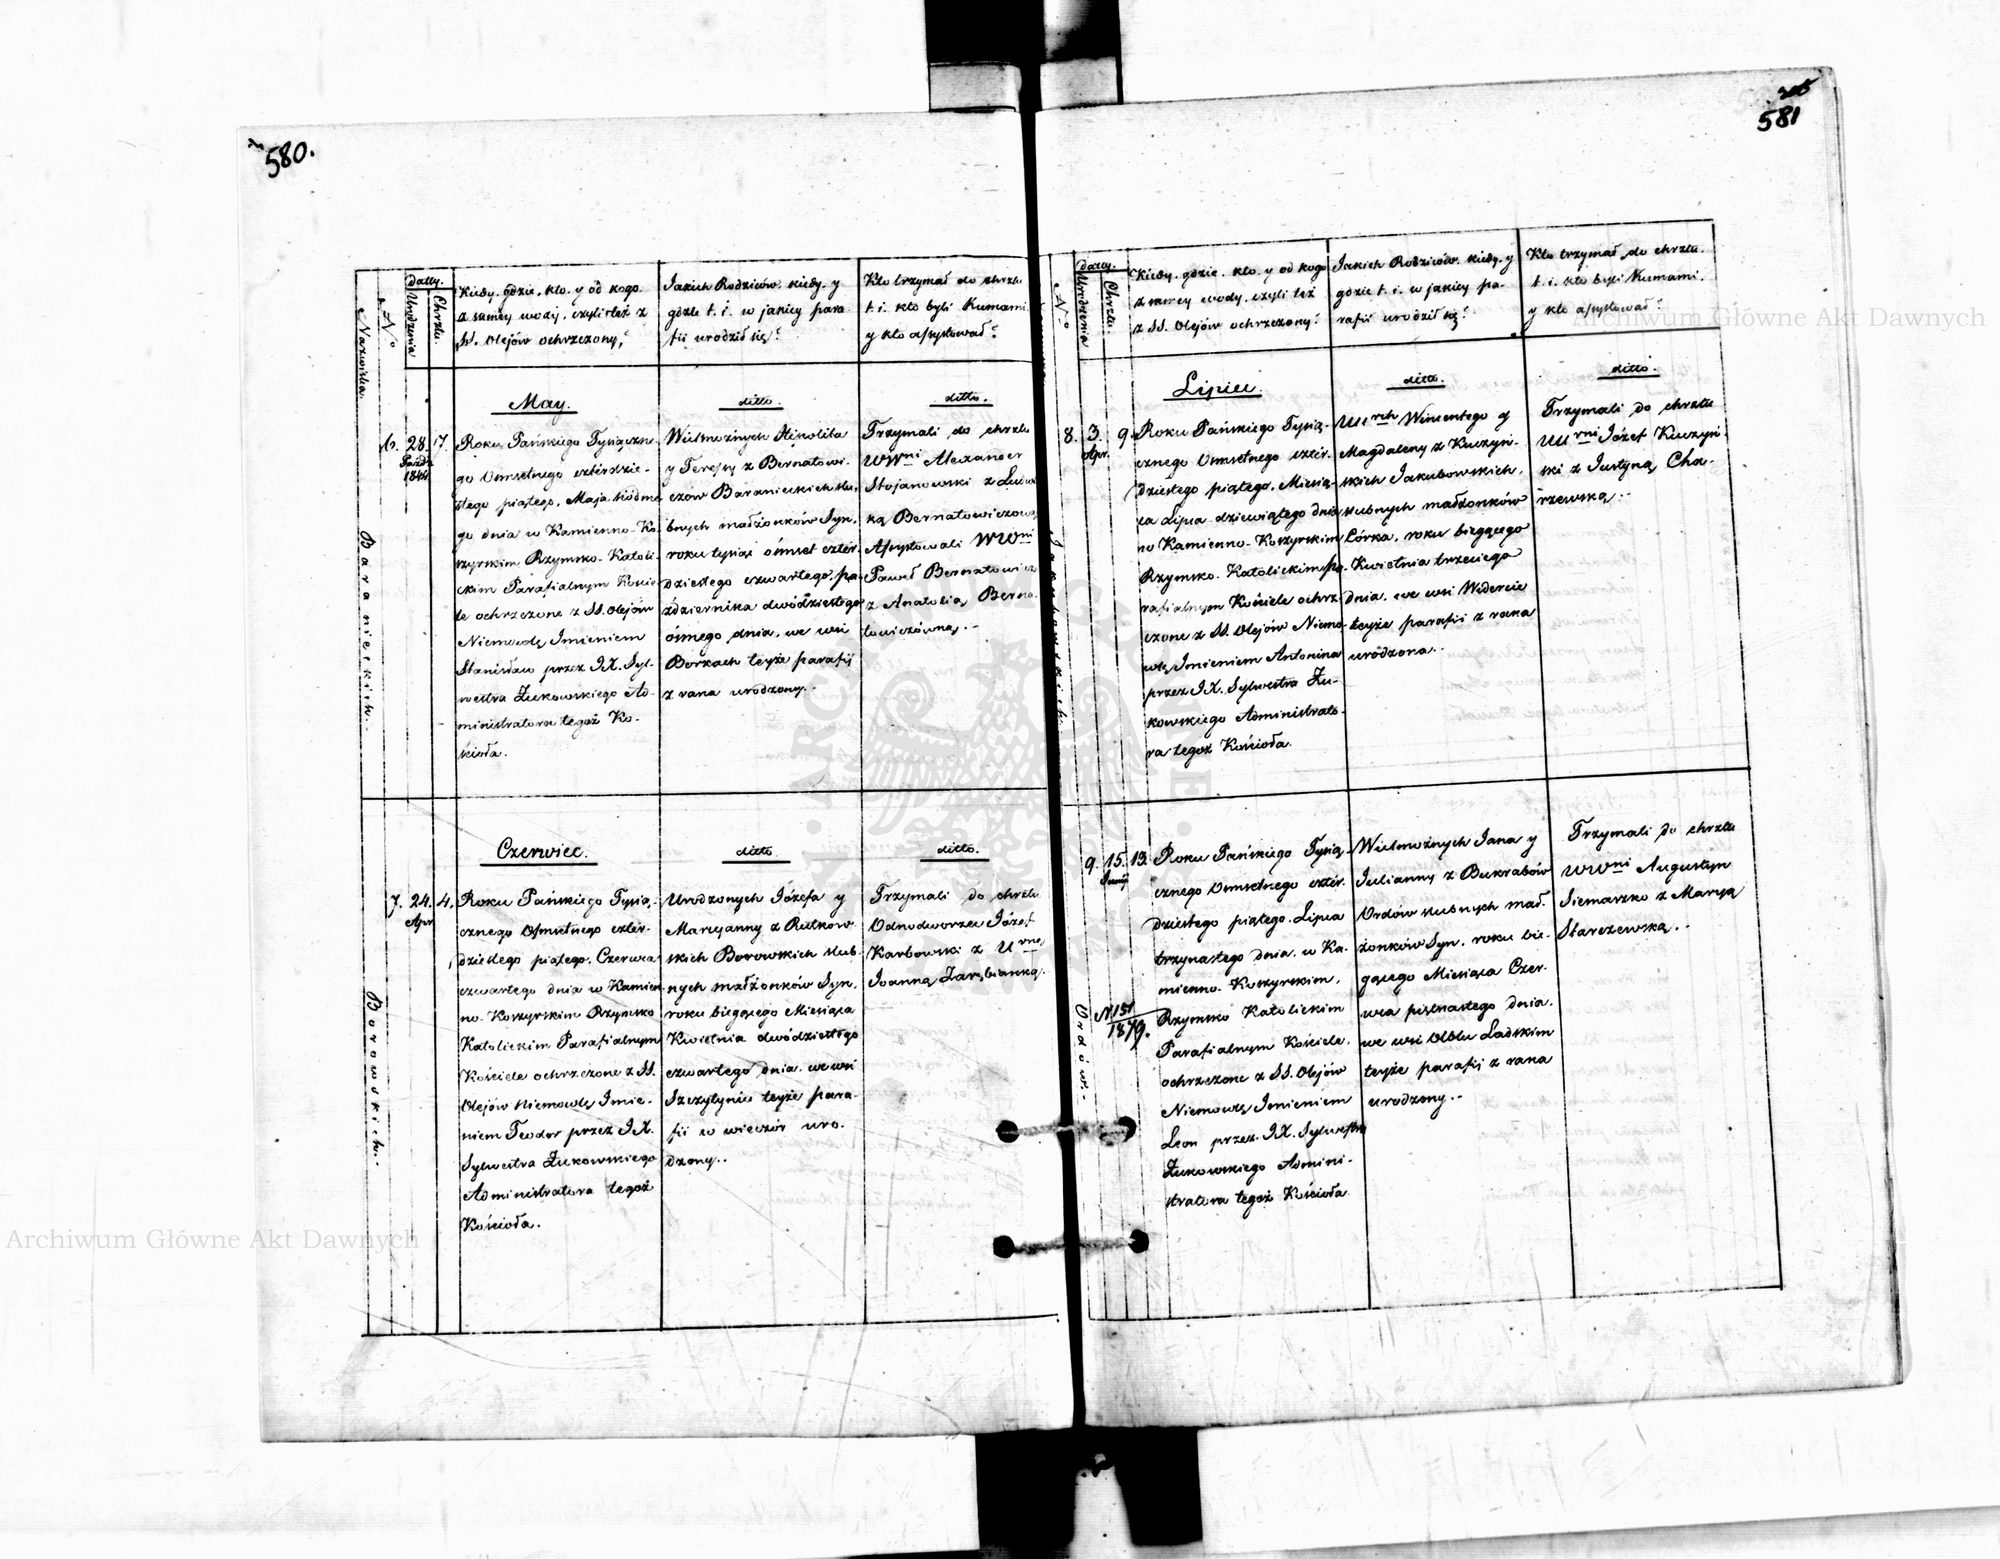 580.
datty.
Nazwiska.
No
Urodzenia
Chrztu.
Kiedy. gdzie. kto. y od kogo
z samey wody, czyli też z
SS. Olejów ochrzczony?
Jakich Rodziców. kiedy. y
gdzie t. i. w jakiey para
fii urodził się?
Kto trzymał do chrztu
t. i. kto byli Kumami.
y kto assystował?
May.
ditto.
ditto.
Baranieckich.
6. 28. 17.
Paźdz.
1844
Roku Pańskiego Tysiączne-
go Ośmsetnego czterdzie-
stego piątego, Maja siódme
go dnia w Kamienno-Ko-
szyrskim Rzymsko-Katoli-
ckim Parafialnym Koście
le ochrzczone z SS. Olejów
Niemowlę Imieniem
Stanisław przez IX. Syl-
westra Żukowskiego Ad-
ministratora tegoż Ko-
ścioła.
Wielmożnych Hipolita
y Teressy z Bernatowi-
czów Baranieckich ślu-
bnych małżonków Syn,
roku tysiąc ośmset czter-
dziestego czwartego, pa-
ździernika dwódziestego
ósmego dnia, we wsi
Borkach teyże parafij
z rana urodzony..
Trzymali do chrztu
WWni Alexander
Stojanowski z Ludwi
ką Bernatowiczową
Assystowali WWni
Paweł Bernatowicz
z Anatolią Berna-
towiczówną..
Czerwiec.
ditto
ditto.
Borowskich.
7. 24. 4.
Apr.
Roku Pańskiego Tysią-
cznego Ośmsetnego czter-
dziestego piątego, Czerwca
czwartego dnia w Kamien-
no-Koszyrskim Rzymsko
Katolickim Parafialnym
Kościele ochrzczone z SS.
Olejów Niemowlę Imie-
niem Teodor przez IX.
Sylwestra Żukowskiego
Administratora tegoż
Kościoła.
Urodzonych Józefa y
Maryanny z Rutkow-
skich Borowskich ślub-
nych małżonków Syn,
roku bieżącego Miesiąca
Kwietnia dwódziestego
czwartego dnia. we wsi
Szczytyniu teyże para-
fii w wieczór uro-
dzony..
Trzymali do chrztu
Odnodworzec Józef
Karbowski z Urną
Joanną Zarębianką.
581
datty.
No
Urodzenia
Chrztu.
Kiedy. gdzie. kto. y od kogo
z samey wody, czyli też
z SS. Olejów ochrzczony?
Jakich Rodziców. kiedy. y
gdzie t. i. w jakiey pa-
rafii urodził się?
Kto trzymał do chrztu.
t. i. kto byli Kumami.
y kto assystował?
Lipiec.
ditto.
ditto.
Jakubowskich.
8. 3. 9.
Apr.
Roku Pańskiego Tysią-
cznego Ośmsetnego czter-
dziestego piątego, Miesią-
ca Lipca dziewiątego dnia
w Kamienno-Koszyrskim
Rzymsko-Katolickim pa-
rafialnym Kościele ochrz-
czone z SS. Olejów Niemo-
wlę Imieniem Antonina
przez IX. Sylwestra Żu-
kowskiego Administrato-
ra tegoż Kościoła.
UUrych Wincentego y
Magdaleny z Kuczyń-
skich Jakubowskich,
ślubnych małżonków
Córka, roku bieżącego
Kwietnia trzeciego
dnia, we wsi Widercie
teyże parafii z rana
urodzona..
Trzymali do chrztu
UUrni Józef Kuczyń-
ski z Justyną Cho-
rzewską..
Ordów.
9. 15. 13.
Junij
N. 151
1879.
Roku Pańskiego Tysią-
cznego Ośmsetnego czter-
dziestego piątego, Lipca
trzynastego dnia. w Ka-
mienno-Koszyrskim,
Rzymsko Katolickim
Parafialnym Kościele.
ochrzczone z SS. Olejów
Niemowlę Imieniem
Leon przez IX. Sylwestra
Żukowskiego Admini-
stratora tegoż Kościoła
Wielmożnych Jana y
Julianny z Bukrabów
Ordów ślubnych mał-
żonków Syn, roku bie-
żącego Miesiąca Czer-
wca piętnastego dnia.
we wsi Olblu Ladskim
teyże parafij z rana
urodzony..
Trzymali do chrztu
WWni Augustyn
Siemaszko z Maryą
Starzewską..
Archiwum Główne Akt Dawnych
Archiwum Główne Akt Dawnych